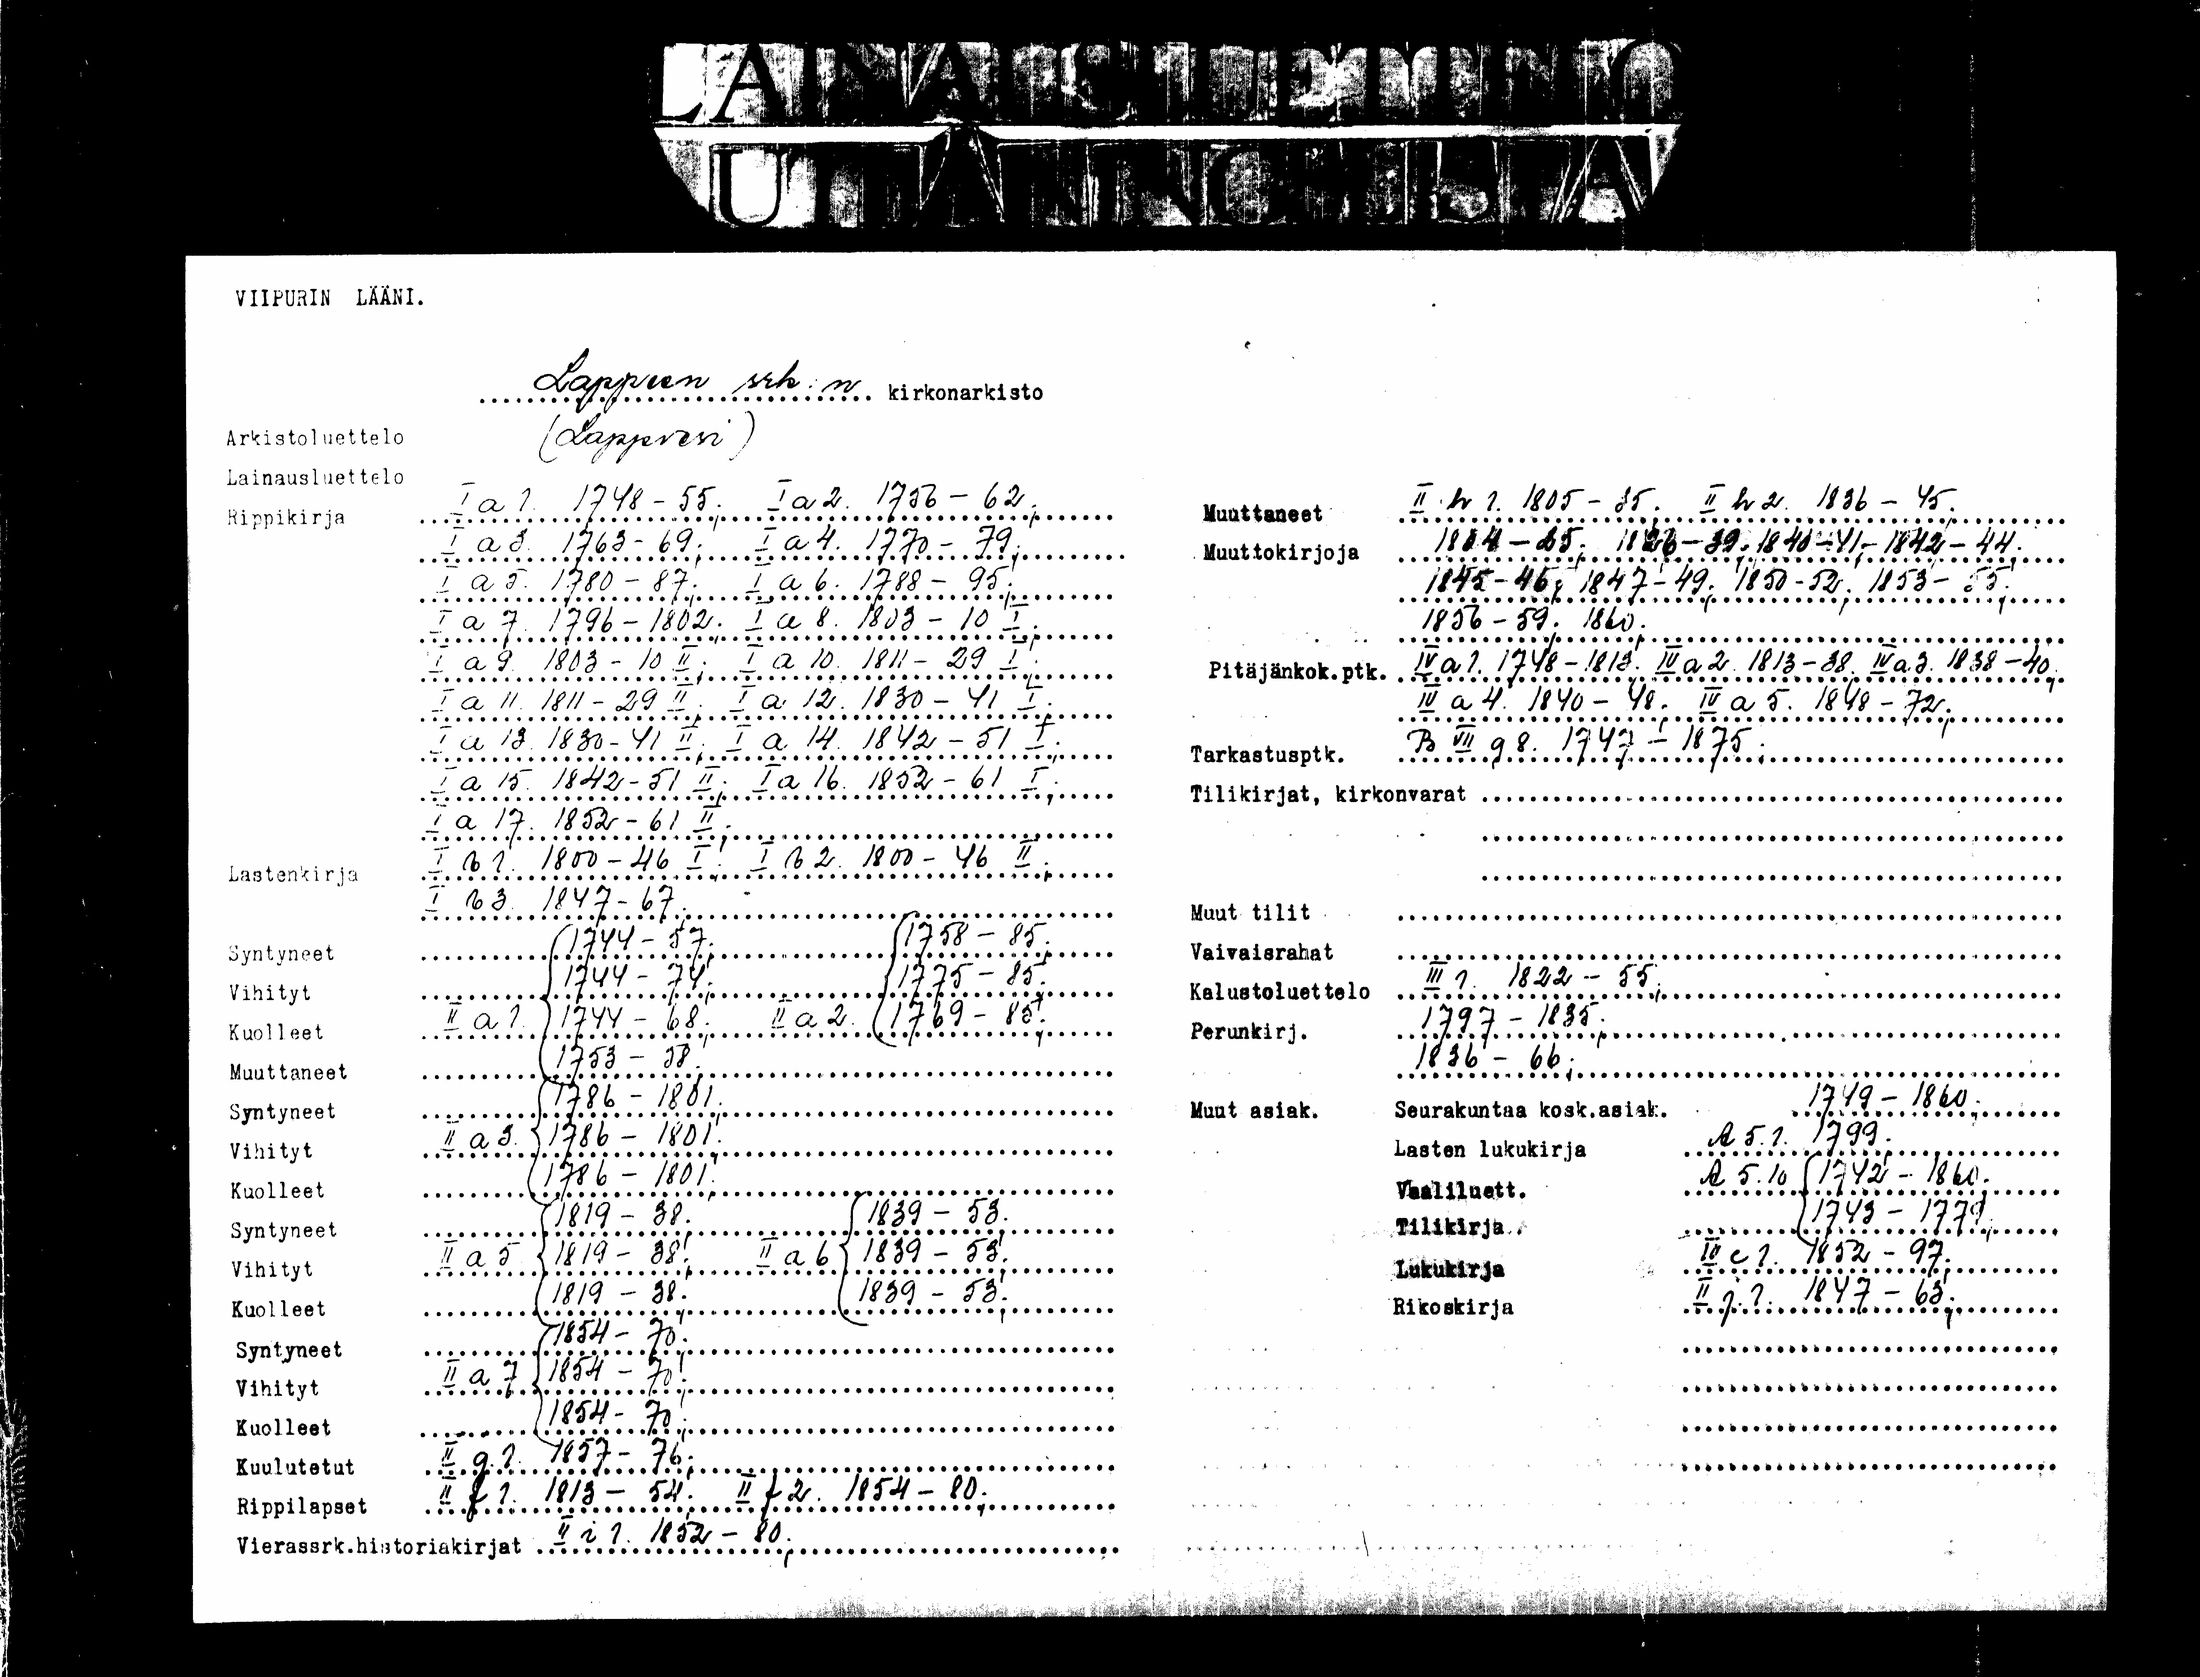 LAINAUSLUETTELO
UTLÅNINGSLISTA
VIIPURIN LÄÄNI.
Lappeen srk:n kirkonarkisto
Arkistoluettelo (Lappvesi)
Lainausluettelo
Rippikirja I a 1. 1748-55; I a 2. 1756-62;
I a 3. 1763-69; I a 4. 1770-79;
I a 5. 1780-87; I a 6. 1788-95;
I a 7. 1796-1802. I a 8. 1803-10 I;
I a 9. 1803-10 II; I a 10. 1811-29 I;
I a 11. 1811-29 II; I a 12. 1830-41 I;
I a 13. 1830-41 II; I a 14. 1842-51 I;
I a 15. 1842-51 II; I a 16. 1852-61 I;
I a 17. 1852-61 II;
Lastenkirja I b 1. 1800-46 I; I b 2. 1800-46 II;
I b 3. 1847-67;
Syntyneet 1744-57; 1758-85;
Vihityt 1744-74; 1775-85;
Kuolleet II a 1. 1744-68; II a 2. 1769-85;
Muuttaneet 1753-58.
Syntyneet 1786-1801.
Vihityt II a 3. 1786-1801;
Kuolleet 1786-1801;
Syntyneet 1819-38. 1839-53.
Vihityt II a 5 1819-38; II a 6 1839-53;
Kuolleet 1819-38; 1839-53;
Syntyneet 1854-70.
Vihityt II a 7 1854-70;
Kuolleet 1854-70;
Kuulutetut II g 1. 1857-76;
Rippilapset II f 1. 1813-54; II f 2. 1854-80;
Vierassrk.historiakirjat II i 1. 1852-80;
Muuttaneet II h 1. 1805-35. II h 2. 1836-45.
Muuttokirjoja 1826-39; 1840-41, 1842-44;
1845-46; 1847-49; 1850-52; 1853-55;
1856-59; 1860;
Pitäjänkok.ptk. IV a 1. 1748-1813; IV a 2. 1813-38. IV a 3. 1838-40;
IV a 4. 1840-48; IV a 5. 1848-72;
Tarkastusptk. B VII g 8. 1747-1875;
Tilikirjat, kirkonvarat
Muut tilit
Vaivaisrahat
Kalustoluettelo III 1. 1822-55;
Perunkirj. 1797-1835;
1836-66;
Muut asiak. Seurakuntaa kosk.asiak. 1749-1860;
Lasten lukukirja A 5.1. 1799.
Vaaliluett. A 5.10 1742-1860.
Tilikirja 1743-1779
Lukukirja 1852-97;
Rikoskirja II j 1. 1847-63;